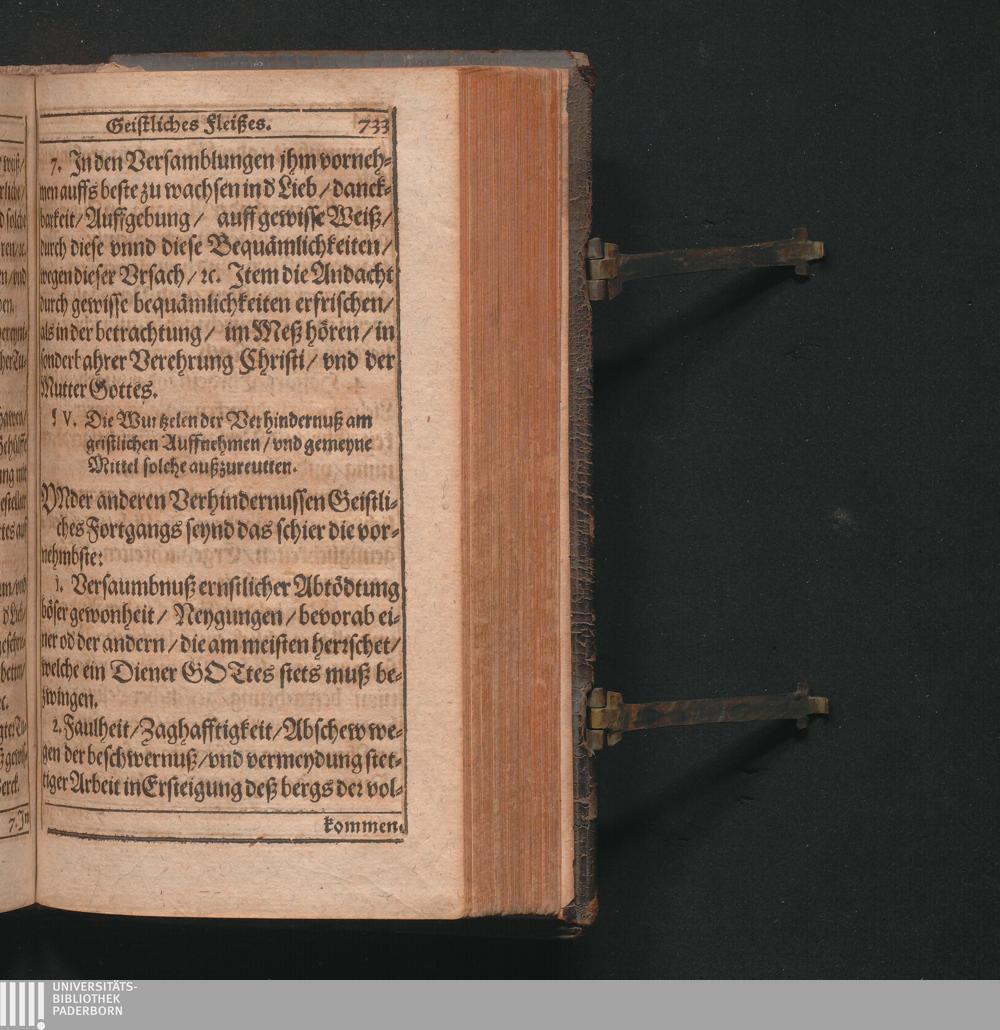 Geistliches Fleißes. 733
7. In den Versamblungen jhm vorneh-
men auffs beste zu wachsen in d̕ Lieb / danck-
barkeit / Auffgebung / auff gewisse Weiß /
durch diese vnnd diese Bequämlichkeiten /
wegen dieser Vrsach / ꝛc. Item die Andacht
durch gewisse bequämlichkeiten erfrischen /
als in der betrachtung / im Meß hören / in
sonderbahrer Verehrung Christi / vnd der
Mutter Gottes.
§ V. Die Wurtzelen der Verhindernuß am
geistlichen Auffnehmen / vnd gemeyne
Mittel solche außzureutten.
VNder anderen Verhindernussen Geistli-
ches Fortgangs seynd das schier die vor-
nehmbste:
1. Versaumbnuß ernstlicher Abtödtung
böser gewonheit / Neygungen / bevorab ei-
ner od̕ der andern / die am meisten herrschet /
welche ein Diener GOTtes stets muß be-
zwingen.
2. Faulheit / Zaghafftigkeit / Abschew we-
gen der beschwernuß / vnd vermeydung stet-
tiger Arbeit in Ersteigung deß bergs der vol-
kommen-
7. In
UNIVERSITÄTS-
BIBLIOTHEK
PADERBORN